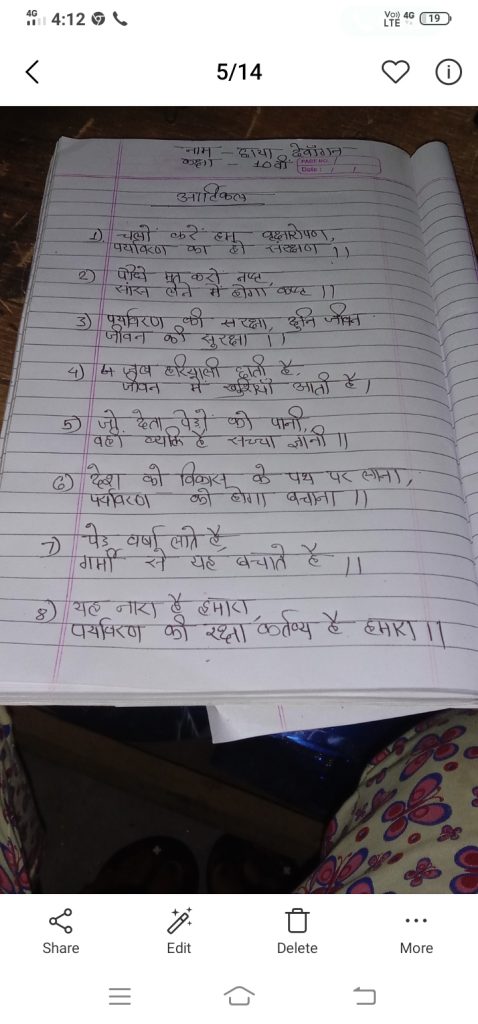 4G 4:12 Vo) 4G LTE 19
5/14
नाम - छाया देवाँगन
कक्षा - 10वीं
PAGE NO.
Date: / /
आर्टिकल
1) चलो करें हम वृक्षारोपण,
पर्यावरण का हो संरक्षण ।।
2) पौधे मत करो नष्ट,
सांस लेने में होगा कष्ट ।।
3) पर्यावरण की सरक्षा, जीवन
जीवन की सुरक्षा ।।
4) जब हरियाली छाती है,
जीवन में खुशियाँ आती है।
5) जो देता पेड़ों को पानी,
वहीं व्यक्ति है सच्चा ज्ञानी ।।
6) देश को विकास के पथ पर लाना,
पर्यावरण को होगा बचाना ।।
7) पेड़ वर्षा लाते है,
गर्मी से यह बचाते है ।।
8) यह नारा है हमारा,
पर्यावरण की रक्षा कर्तव्य है हमारा ।।
Share Edit Delete More